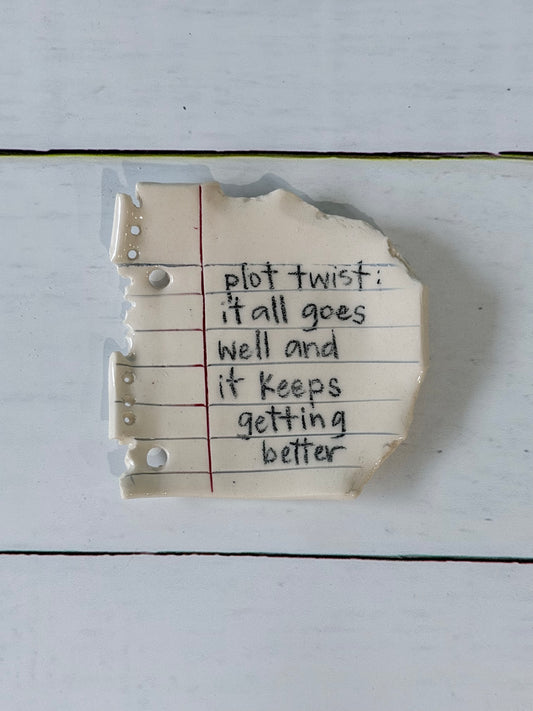 plot twist:
it all goes
well and
it keeps
getting
better